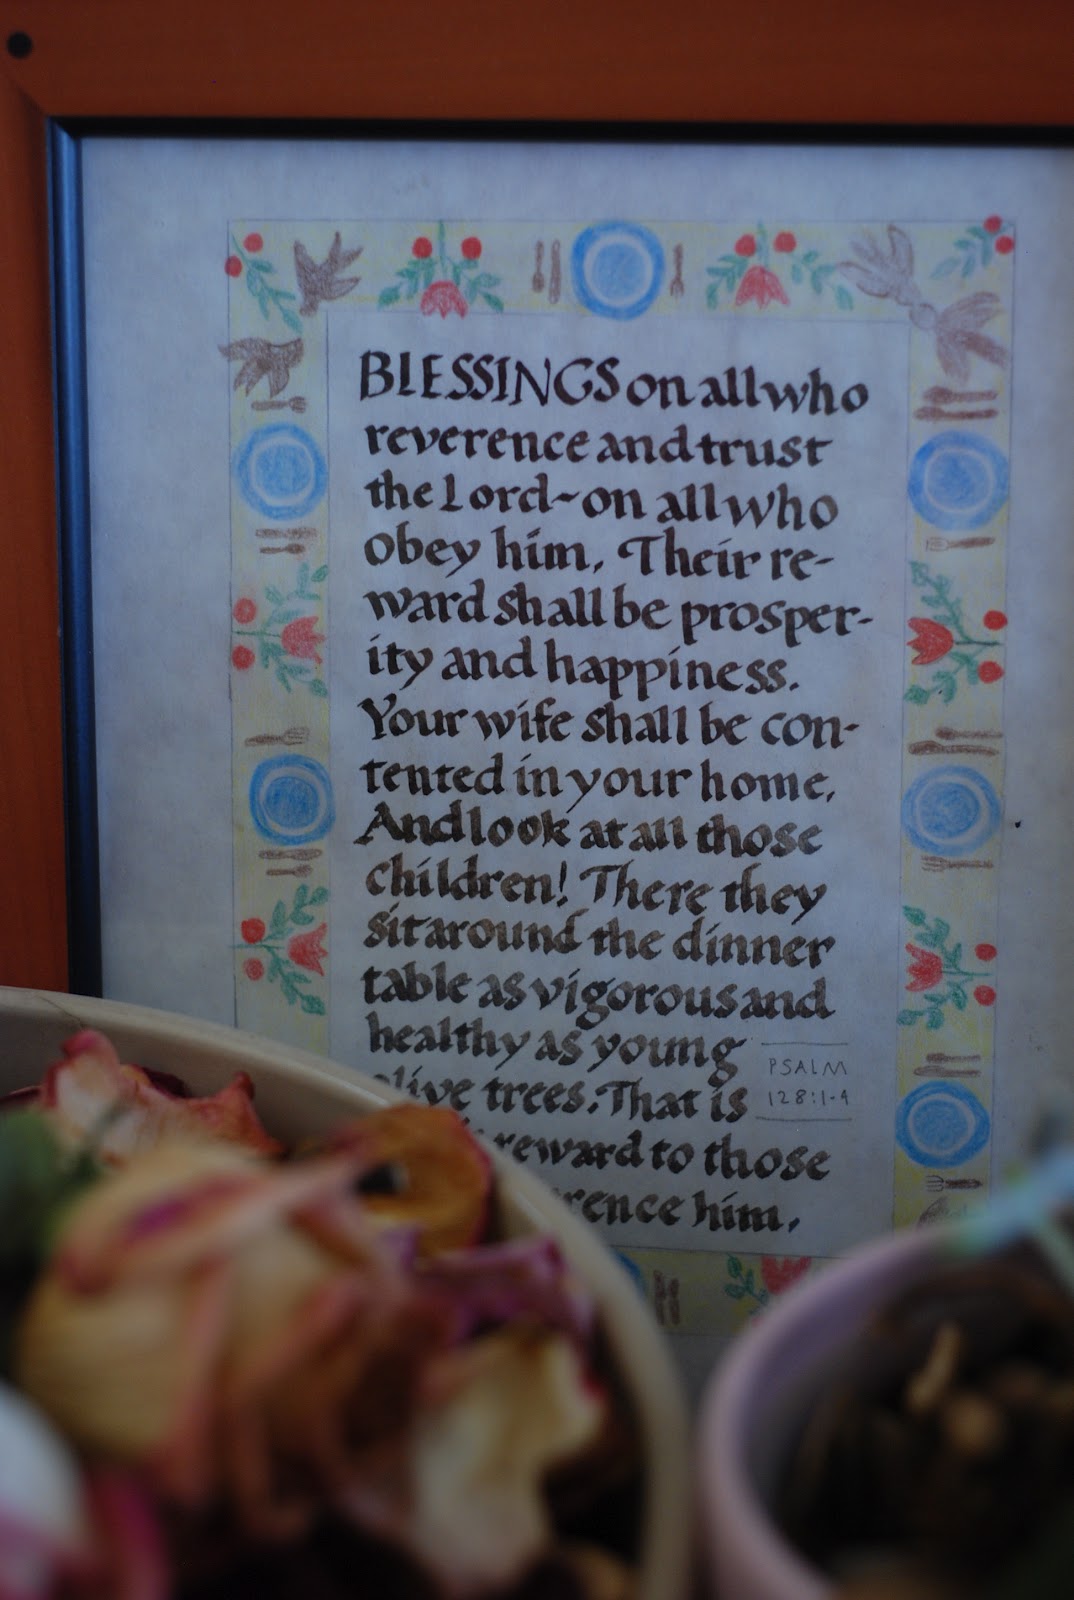 BLESSINGS on all who
reverence and trust
the Lord~on all who
obey him. Their re-
ward shall be prosper-
ity and happiness.
Your wife shall be con-
tented in your home.
And look at all those
children! There they
sit around the dinner
table as vigorous and
healthy as young
olive trees. That is
reward to those
him.
PSALM
128:1-4